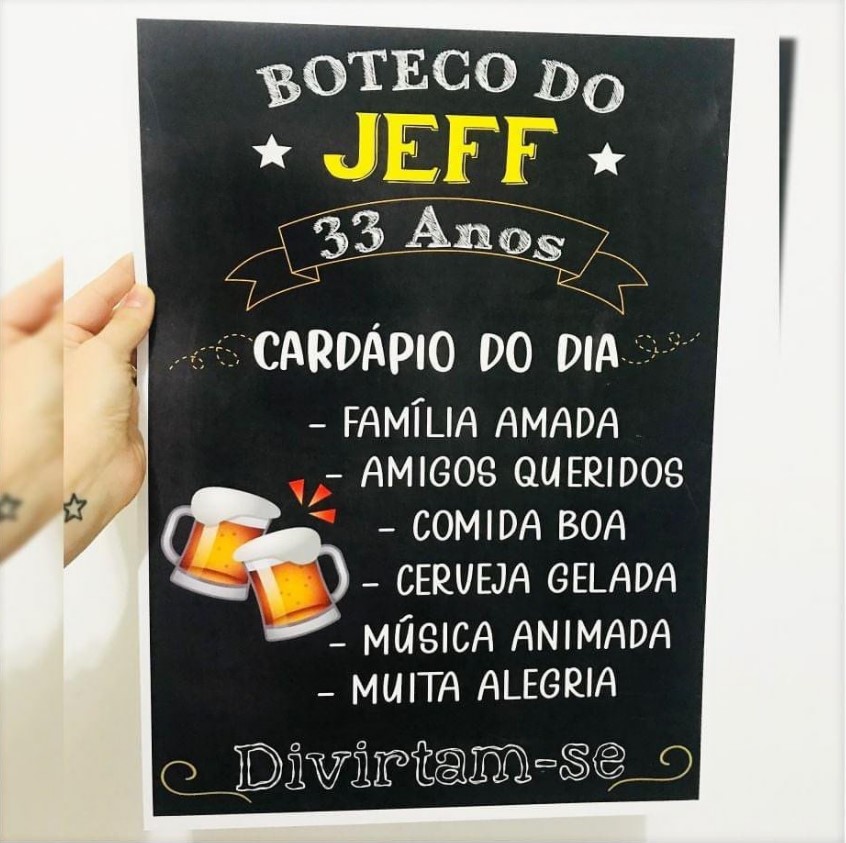 BOTECO DO
JEFF
33 Anos
CARDÁPIO DO DIA
- FAMÍLIA AMADA
- AMIGOS QUERIDOS
- COMIDA BOA
- CERVEJA GELADA
- MÚSICA ANIMADA
- MUITA ALEGRIA
Divirtam-se